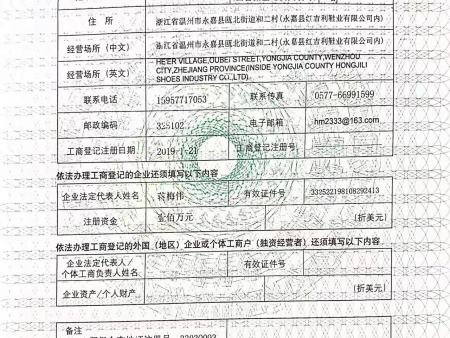 住 所 浙江省温州市永嘉县瓯北街道和二村(永嘉县红吉利鞋业有限公司内)
经营场所(中文) 浙江省温州市永嘉县瓯北街道和二村(永嘉县红吉利鞋业有限公司内)
经营场所(英文) HE'ER VILLAGE,OUBEI STREET,YONGJIA COUNTY,WENZHOU
CITY,ZHEJIANG PROVINCE(INSIDE YONGJIA COUNTY HONGJILI
SHOES INDUSTRY CO.,LTD)
联系电话 15957717053 联系传真 0577-66991599
邮政编码 325102 电子邮箱 hm2333@163.com
工商登记注册日期 2019-1-21 工商登记注册号
依法办理工商登记的企业还须填写以下内容
企业法定代表人姓名 蒋梅伟 有效证件号 332522198108292413
注册资金 壹佰万元 (折美元)
依法办理工商登记的外国(地区)企业或个体工商户(独资经营者)还须填写以下内容
企业法定代表人/ 有效证件号
个体工商负责人姓名
企业资产/个人财产 (折美元)
备注